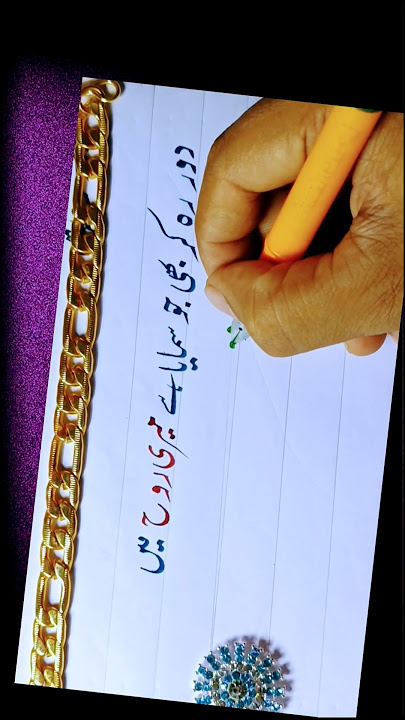 دور رہ کر بھی جو سمایا ہے میری روح میں